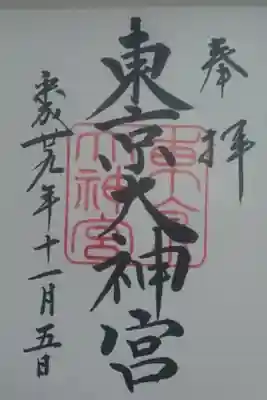 奉拝
東京大神宮
東京大神宮
平成廿九年十一月五日